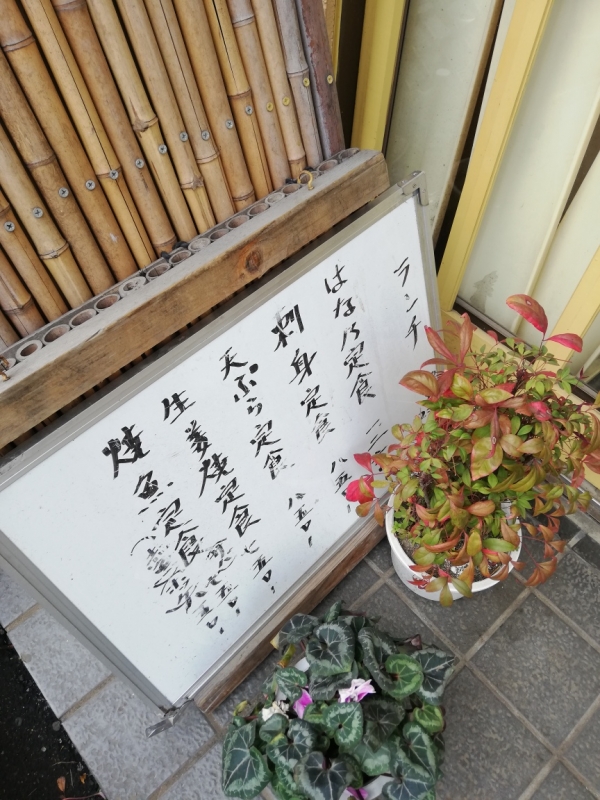 ランチ
はな乃定食 一二
刺身定食 八五〇、
天ぷら定食 八五〇、
生姜焼定食 七五〇、
焼魚定食 七五〇、